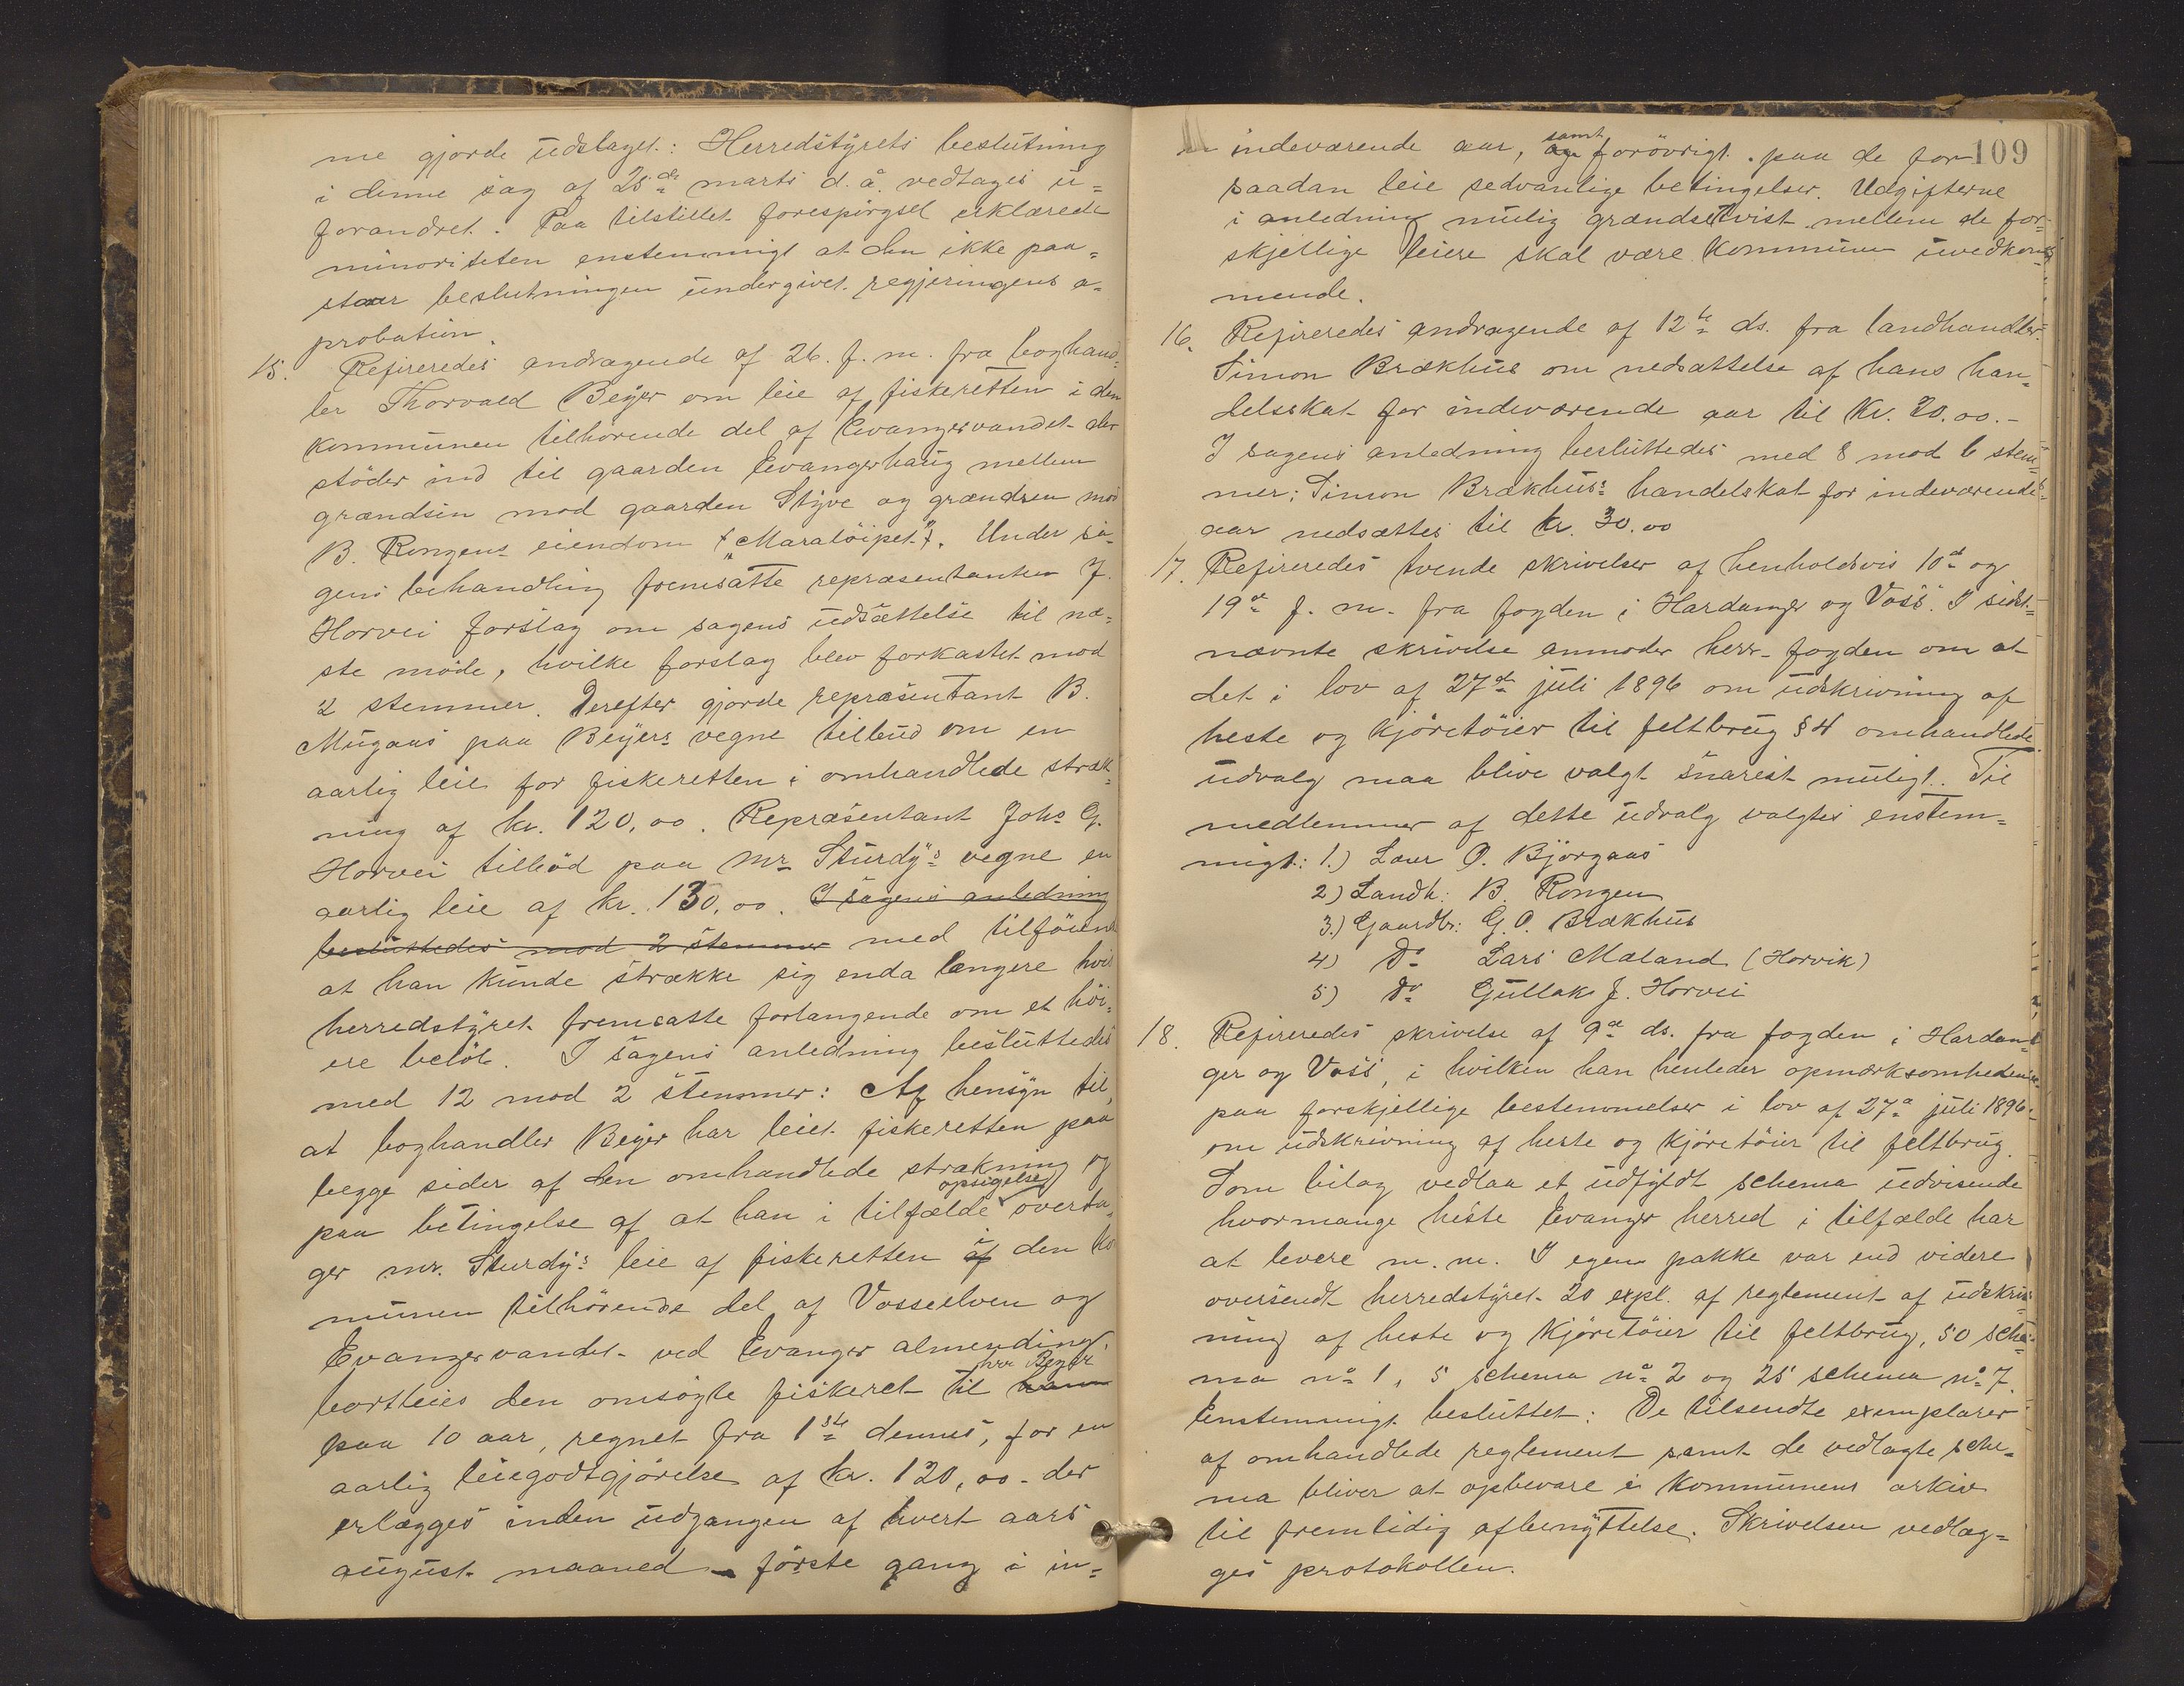 me gjorde udslaget: Herredstyrets beslutning
i denne sag af 25de marts d. å. vedtages u=
forandret. Paa tilstillet forespörgsel erklærede
minoriteten enstemmigt at den ikke paa=
staar beslutningen undergivet regjeringens a=
probation.
15. Refereredes andragende af 26. f. m. fra boghand=
ler Thorvald Beyer om leie af fiskeretten i den
kommunen tilhørende del af Evangervandet der
støder ind til gaarden Evangerhaug mellem
grændsen mod gaarden Styve og grændsen mod
B. Rongens eiendom ("Maraløipet"). Under sa=
gens behandling fremsatte repræsentanten J.
Horvei forslag om sagens udsættelse til næ=
ste møde, hvilke forslag blev forkastet mod
2 stemmer. Derefter gjorde repræsentant B.
Mugaas paa Beyers vegne tilbud om en
aarlig leie for fiskeretten i omhandlede stræk=
ning af kr. 120,00. Repræsentant Johs G.
Horvei tilbød paa Mr. Sturdy's vegne en
aarlig leie af kr. 130,00. I sagens anledning
besluttedes mod 2 stemmer med tilføiend
at han kunde strække sig enda længere hvis
herredstyret fremsatte forlangende om et höi=
ere beløb. I sagens anledning besluttedes
med 12 mod 2 stemmer: Af hensyn til,
at boghandler Beyer har leiet fiskeretten paa
begge sider af den omhandlede strækning og
paa betingelse af at han i tilfælde opsigelse overta=
ger mr. Sturdy's leie af fiskeretten af den ko
munen tilhörende del af Vosseelven og
Evangervandet ved Evanger almending
bortleies den omsøgte fiskeret til ham hrr Beyer
paa 10 aar, regnet fra 1ste dennes, for en
aarlig leiegodtgjörelse af kr. 120,00 der
erlægges inden udgangen af hvert aars
august maaned förste gang i in=
109
indeværende aar, og samt forövrigt paa de for
saadan leie sedvanlige betingelser. Udgifterne
i anledning mulig grændsetvist mellem de for=
skjellige leiere skal være kommunen uvedkom=
mende.
16. Refereredes andragende af 12te ds. fra landhandler
Simon Brækhus om nedsættelse af hans han=
delsskat for indeværende aar til Kr. 20.00.-
I sagens anledning besluttedes med 8 mod 6 stem=
mer: Simon Brækhus's handelskat for indeværende
aar nedsættes til kr. 30.00
17. Refereredes tvende skrivelser af henholdsvis 10de og
19de f. m. fra fogden i Hardanger og Voss. I sidst=
nævnte skrivelse anmoder herr fogden om at
det i lov af 27de juli 1896 om udskrivning af
heste og kjøretöier til feltbrug § 4 omhandlede
udvalg maa blive valgt snarest muligt. Til
medlemmer af dette udvalg valgtes enstem=
migt: 1.) Lær O. Björgaas
2) Landh: B. Rongen
3.) Gaardbr: G. O. Brækhus
4) Do Lars Mæland (Horvik)
5) do Gullak J. Horvei
18. Refereredes skrivelse af 9de ds. fra fogden i Hardan=
ger og Voss, i hvilken han henleder opmærksomheden
paa forskjellige bestemmelser i lov af 27de juli 1896
om udskrivning af heste og kjöretöier til feltbrug.
Som bilag vedlaa et udfyldt schema udvisende
hvormange heste Evanger herred i tilfælde har
at levere m. m. I egen pakke var end videre
oversendt herredstyret 20 expl. af reglement af udskriv=
ning af heste og kjöretöier til feltbrug, 50 sche=
ma no 1, 5 schema no 2 og 25 schema no 7.
Enstemmigt besluttet: De tilsendte exemplarer
af omhandlede reglement samt de vedlagte sche=
ma bliver at opbevare i kommunens arkiv
til fremtidig afbenyttelse. Skrivelsen vedlæg=
ges protokollen.